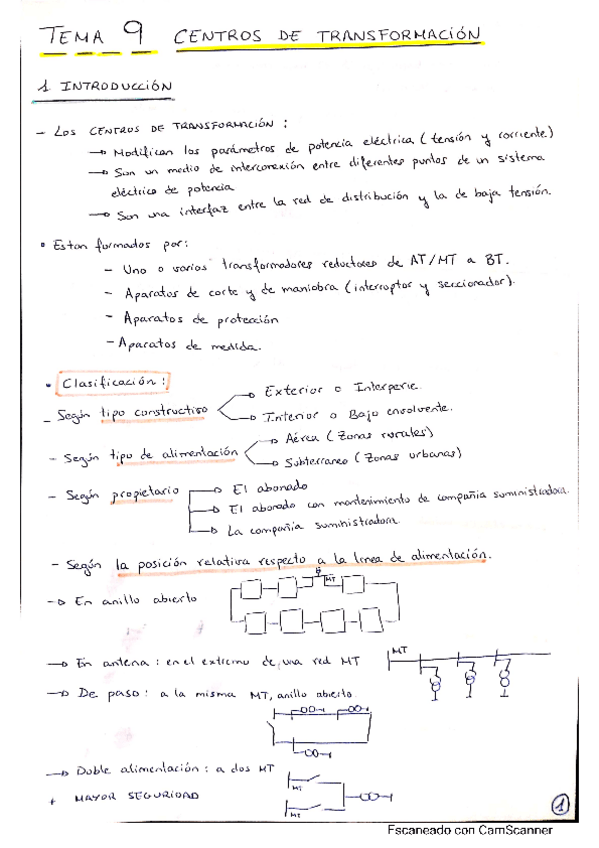 TEMA 9 CENTROS DE TRANSFORMACIÓN
1 INTRODUCCIÓN
- LOS CENTROS DE TRANSFORMACIÓN :
→ Modifican los parámetros de potencia eléctrica (tensión y corriente)
→ Son un medio de interconexión entre diferentes puntos de un sistema
eléctrico de potencia
→ Son una interfaz entre la red de distribución y la de baja tensión.
• Estan formados por:
- Uno o varios transformadores reductores de AT/MT a BT.
- Aparatos de corte y de maniobra (interruptor y seccionador).
- Aparatos de protección
- Aparatos de medida.
• Clasificación:
- Según tipo constructivo
→ Exterior o Interperie.
→ Interior o Bajo envolvente.
- Según tipo de alimentación
→ Aérea (Zonas rurales)
→ Subterraneo (Zonas urbanas)
- Según propietario
→ El abonado
→ El abonado con mantenimiento de compañia suministradora.
→ La compañia suministradora.
- Según la posición relativa respecto a la linea de alimentación.
→ En anillo abierto
MT
→ En antena : en el extremo de una red MT
MT
→ De paso : a la misma MT, anillo abierto.
→ Doble alimentación : a dos MT
MT
+ MAYOR SEGURIDAD
MT
1
Escaneado con CamScanner